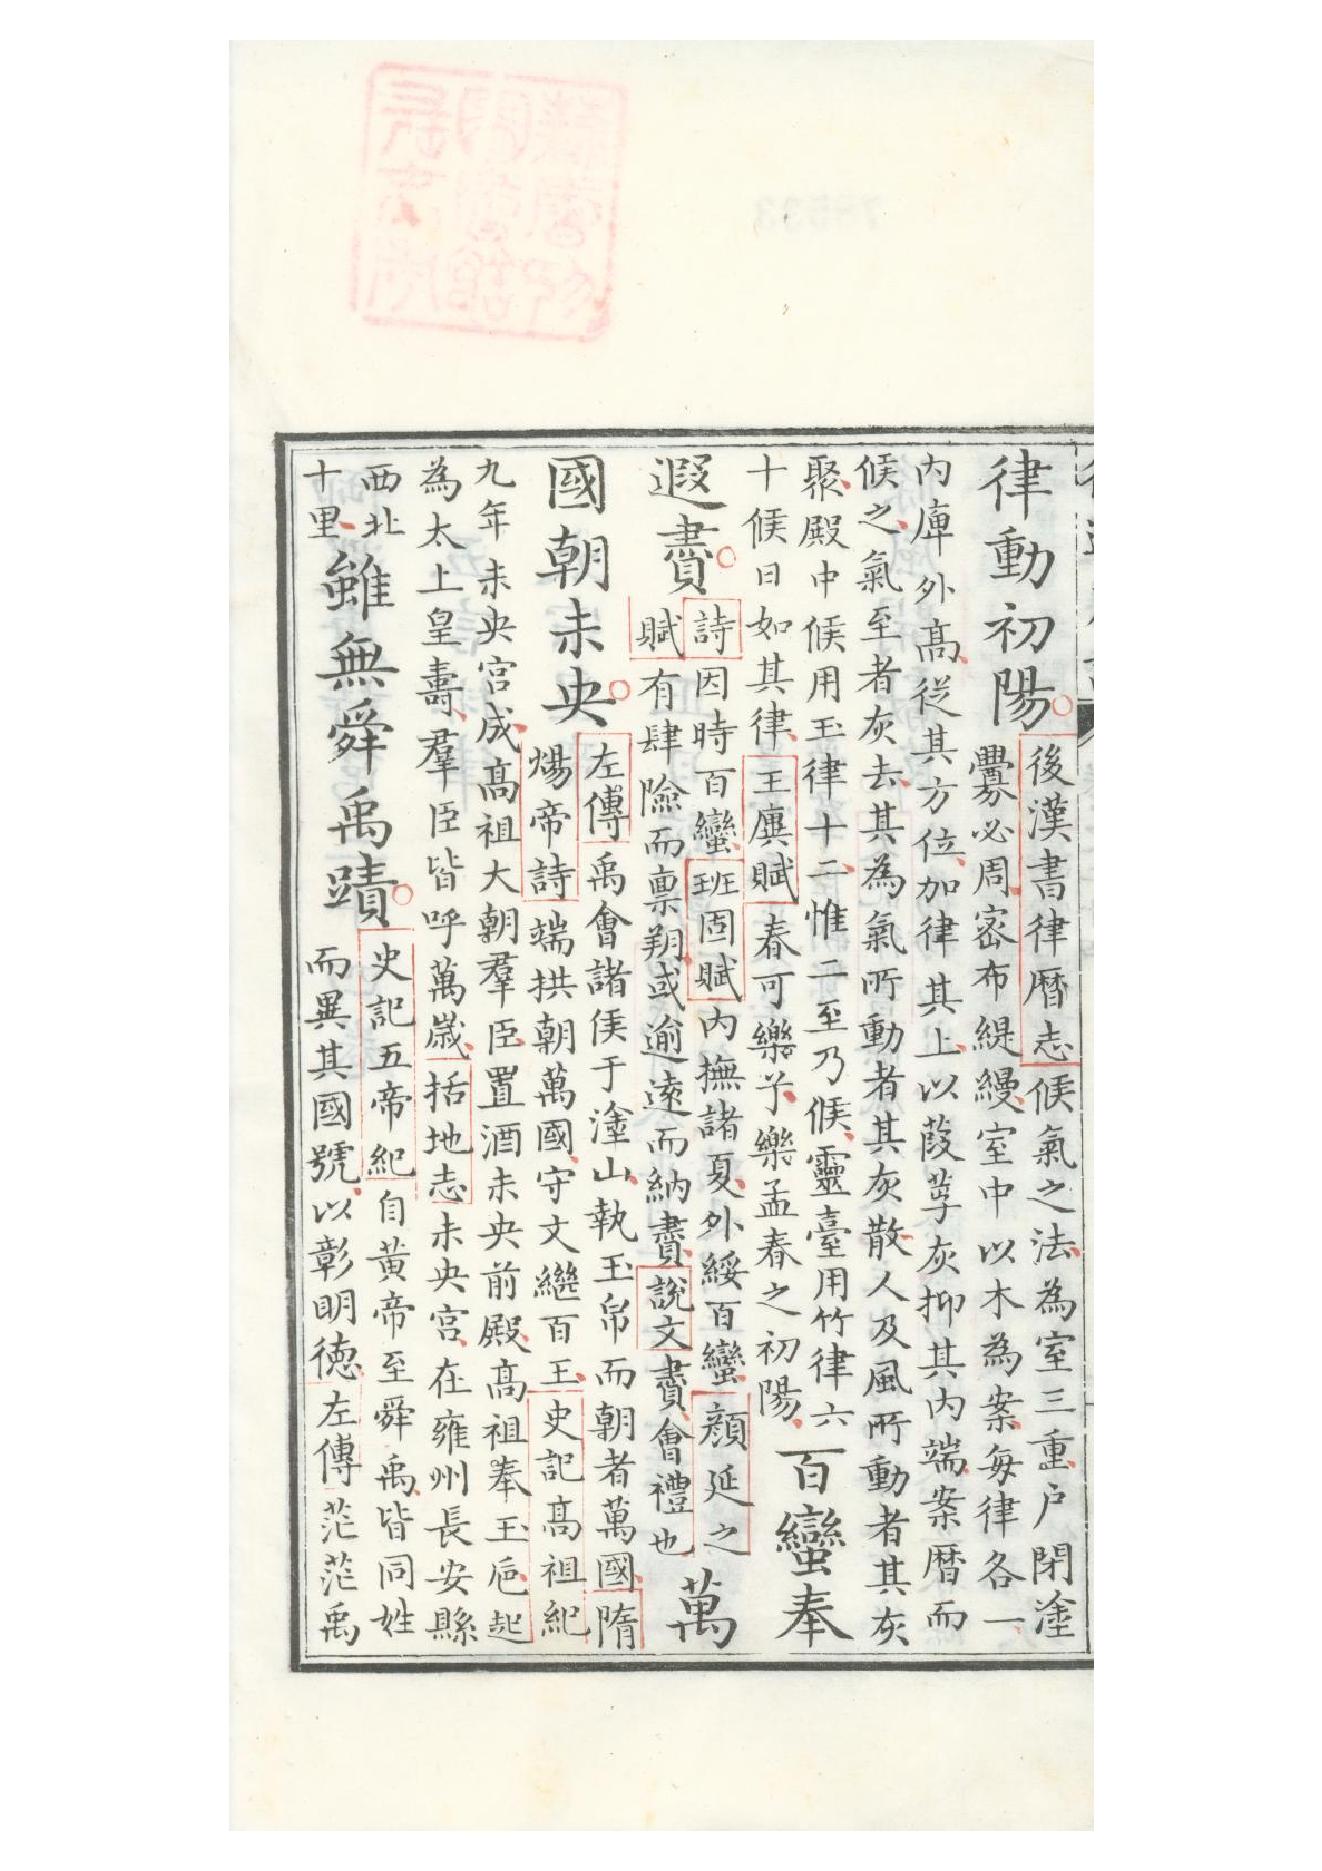 律動初陽
後漢書律曆志候氣之法為室三重户閉塗
釁必周密布緹縵室中以木為案每律各一
内庫外高從其方位加律其上以葭莩灰抑其内端案曆而
候之氣至者灰去其為氣所動者其灰散人及風所動者其灰
聚殿中候用玉律十二惟二至乃候靈臺用竹律六
十候日如其律王廙賦春可樂兮樂孟春之初陽
百蠻奉
遐賮
詩因時百蠻班固賦内撫諸夏外綏百蠻顔延之
賦有肆險而禀朔或逾遠而納賮說文賮會禮也
萬
國朝未央
左傳禹會諸侯于塗山執玉帛而朝者萬國隋
煬帝詩端拱朝萬國守文繼百王史記高祖紀
九年未央宮成高祖大朝羣臣置酒未央前殿高祖奉玉巵起
為太上皇壽羣臣皆呼萬歲括地志未央宮在雍州長安縣
西北
十里
雖無舜禹蹟
史記五帝紀自黄帝至舜禹皆同姓
而異其國號以彰明徳左傳茫茫禹